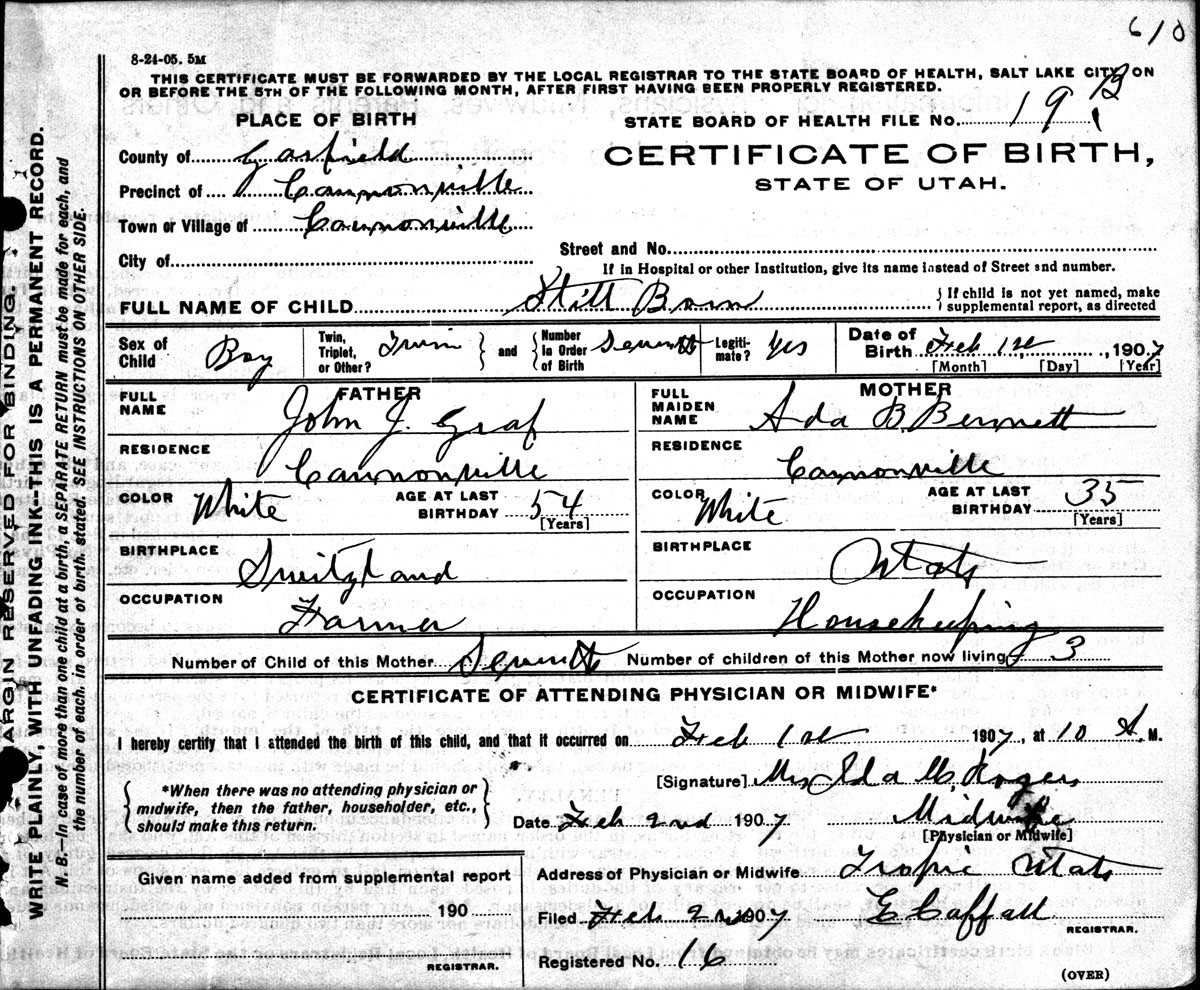 610
8-24-05. 5M
THIS CERTIFICATE MUST BE FORWARDED BY THE LOCAL REGISTRAR TO THE STATE BOARD OF HEALTH, SALT LAKE CITY, ON
OR BEFORE THE 5TH OF THE FOLLOWING MONTH, AFTER FIRST HAVING BEEN PROPERLY REGISTERED.
PLACE OF BIRTH
STATE BOARD OF HEALTH FILE No. 19
County of Garfield
CERTIFICATE OF BIRTH,
STATE OF UTAH.
Precinct of Cannonville
Town or Village of Cannonville
Street and No.
City of
If in Hospital or other Institution, give its name instead of Street and number.
FULL NAME OF CHILD Still Born
{ If child is not yet named, make
supplemental report, as directed
Sex of Child Boy
Twin, Triplet, or Other? Twin } and { Number in Order of Birth Seventh
Legitimate? Yes
Date of Birth Feb 1st, 1907
[Month] [Day] [Year]
FATHER
FULL NAME John J. Graf
MOTHER
FULL MAIDEN NAME Ada B. Bennett
RESIDENCE Cannonville
RESIDENCE Cannonville
COLOR White AGE AT LAST BIRTHDAY 54 [Years]
COLOR White AGE AT LAST BIRTHDAY 35 [Years]
BIRTHPLACE Switzland
BIRTHPLACE Utah
OCCUPATION Farmer
OCCUPATION Housekeeping
Number of Child of this Mother Seventh Number of children of this Mother now living 3
CERTIFICATE OF ATTENDING PHYSICIAN OR MIDWIFE*
I hereby certify that I attended the birth of this child, and that it occurred on Feb 1st 1907, at 10 A. M.
[Signature] Mrs Ida M. Rogers
{ *When there was no attending physician or
midwife, then the father, householder, etc.,
should make this return. }
Date Feb 2nd 1907 Midwife
[Physician or Midwife]
Given name added from supplemental report
190
REGISTRAR.
Address of Physician or Midwife Tropic Utah
Filed Feb 2nd 1907
REGISTRAR.
Registered No. 16
(OVER)
MARGIN RESERVED FOR BINDING.
WRITE PLAINLY, WITH UNFADING INK—THIS IS A PERMANENT RECORD.
N. B.—In case of more than one child at a birth, a SEPARATE RETURN must be made for each, and
the number of each, in order of birth, stated. SEE INSTRUCTIONS ON OTHER SIDE.